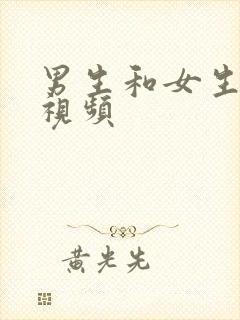 男生和女生
視頻
黄光先